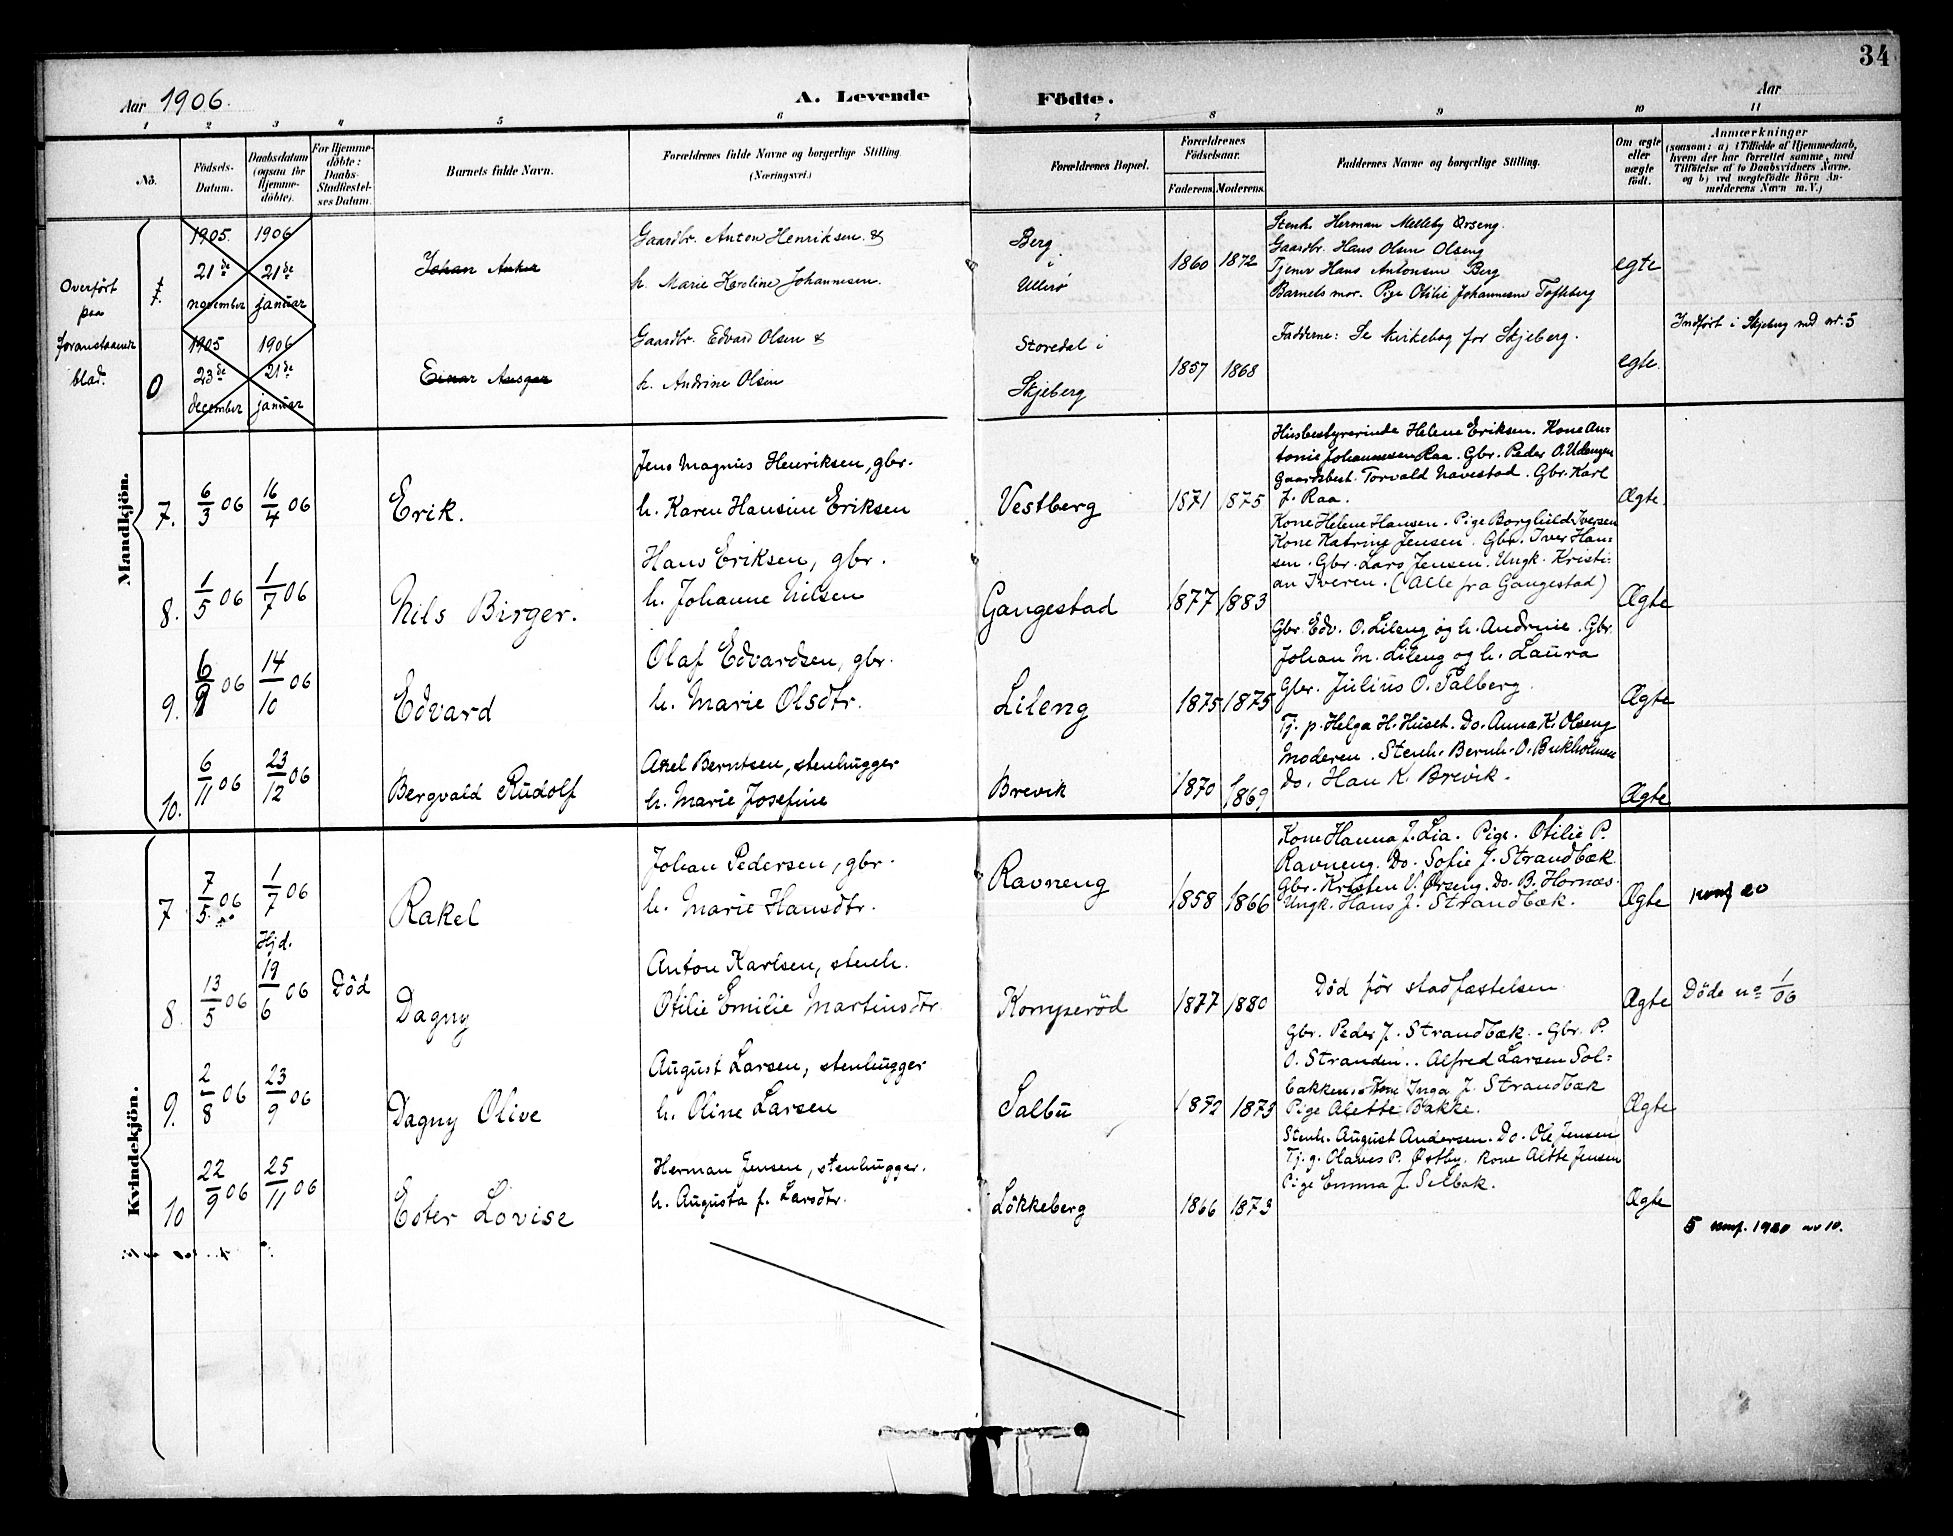 34
Aar 1906.
A. Levende Födte.
Aar
1 2 3 4 5 6 7 8 9 10 11
No.
Födsels-Datum.
Daabsdatum (ogsaa for Hjemme-döbte).
For Hjemme-döbte: Daabs-Stadfæstel-ses Datum.
Barnets fulde Navn.
Forældrenes fulde Navne og borgerlige Stilling.
(Næringsvei.)
Forældrenes Bopæl.
Forældrenes Födselsaar.
Faderens. Moderens.
Faddernes Navne og borgerlige Stilling.
Om ægte eller uægte født.
Anmærkninger
(saasom: a) i Tilfælde af Hjemmedaab, hvem der har forrettet samme, med Tilföielse af to Daabsvidners Navne, og b) ved uægtefödte Börn An-melderens Navn m. V.)
Overført
paa
foranstaaende
blad.
1905. 21de november
1906 21de januar
Johan Anker
Gaardbr. Anton Henriksen &
h. Marie Karoline Johannesen.
Berg
i
Ullerø
1860 1872
Stenh. Herman Melleby Ørseng.
Gaardbr. Hans Olsen Olseng
Tjener Hans Antonsen Berg
Barnets mor. Pige Otilie Johannesen Tofteberg
egte
0
1905 23de december
1906 21de januar
Einar Ansgar
Gaardbr. Edvard Olsen &
h. Andrine Olsen
Storedal i
Skjeberg
1857 1868
Fadderne: Se kirkebog for Skjeberg.
egte.
Indført i Skjeberg md nr. 5
Mandkjön.
7.
6/3 06
16/4 06
Erik.
Jens Magnus Henriksen, gbr.
h. Karen Hansine Eriksen
Vestberg
1871 1875
Husbestyrerinde Helene Eriksen. Kone An-
tonie Johannessen Raa. Gbr. Peder O. Udengen
Gaardsbest. Torvald Navestad. Gbr. Karl
J. Raa.
Ægte.
8.
1/5 06
1/7 06
Nils Birger.
Hans Eriksen, gbr.
h. Johanne Nilsen
Gangestad
1877 1883
Kone Helene Hansen. Pige Borghild Iversen
Kone Katrine Jensen. Gbr. Iver Han-
sen. Gbr. Lars Jensen. Ungk. Kristi-
an Iveren. (Alle fra Gangestad)
Ægte
9.
6/9 06
14/10 06
Edvard
Olaf Edvardsen, gbr.
h. Marie Olsdtr.
Lileng
1875 1875
Gbr. Edv. O. Lileng og h. Andrine. Gbr.
Johan M. Lileng og h. Laura
Gbr. Julius O. Talberg.
Ægte
10.
6/11 06
23/12 06
Bergvald Rudolf
Axel Berntsen, stenhugger
h. Marie Josefine
Brevik
1870 1869
Tj. p. Helga H. Huset. Do. Anna K. Olseng
Moderen. Stenh. Bernh. O. Bukholmen
Do. Han K. Brevik.
Ægte
Kvindekjön.
7
7/5 06
1/7 06
Rakel
Johan Pedersen, gbr.
h. Marie Hansdtr.
Ravneng
1858 1866
Kone Hanna J. Lia. Pige. Otilie P.
Ravneng. Do. Sofie J. Strandbæk
Gbr. Kristen V. Ørseng. Do. B. Hornæs.
Ungk. Hans J. Strandbæk.
Ægte
konf 20
8.
13/5 06
Hjd.
19/6 06
Död
Dagny
Anton Karlsen, stenh.
Otilie Emilie Martinsdtr.
Kornperöd
1877 1880
Död för stadfæstelsen
Ægte
Döde no 1/06
9.
2/8 06
23/9 06
Dagny Olive
August Larsen, stenhugger
h. Oline Larsen
Salbu
1872 1873
Gbr. Peder J. Strandbæk. Gbr. P.
O. Stranden.. Alfred Larsen Sol-
bakken. Kone Inga J. Strandbæk
Pige Alette Bakke.
Ægte
10
22/9 06
25/11 06
Ester Lovise
Herman Jensen, stenhugger.
h. Augusta f. Larsdtr.
Lökkeberg
1866 1873
Stenh. August Andersen. Do. Ole Jensen
Tj. g. Olaves P. Østby. Kone Alette Jensen
Pige Emma J. Selbak.
Ægte
5 konf. 1920 nv 10.